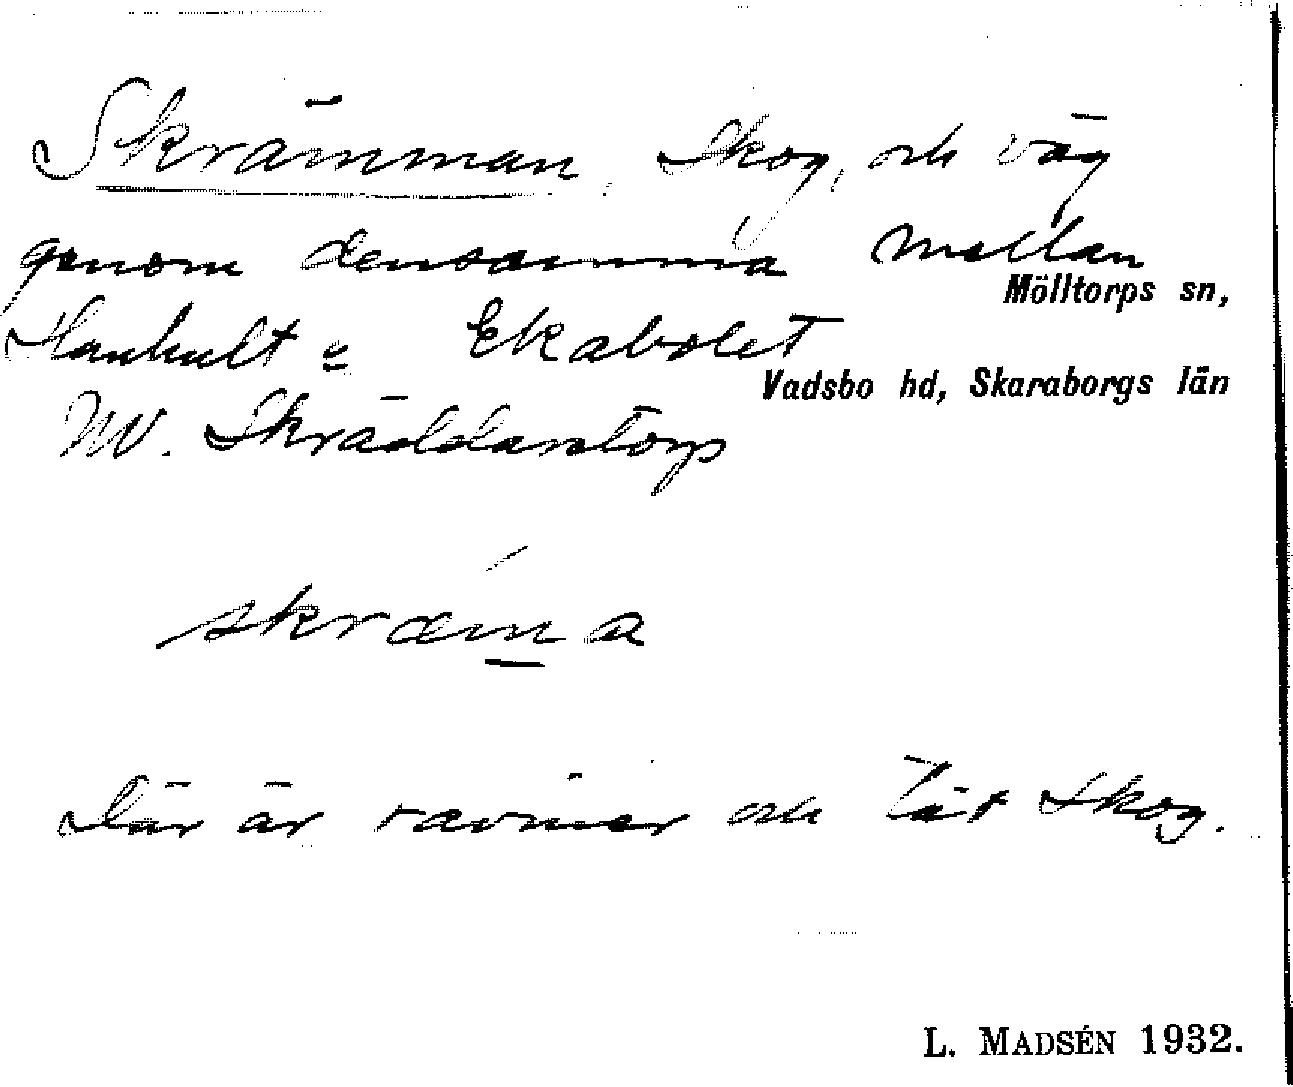 Skrämman, Skog, och väg
genom densamma mellan
Mölltorps sn,
Haukult o Ekabolet
Vadsbo hd, Skaraborgs län
NV. Skräddarstorp
skræma
Där är raviner och tät Skog.
L. MADSÉN 1932.